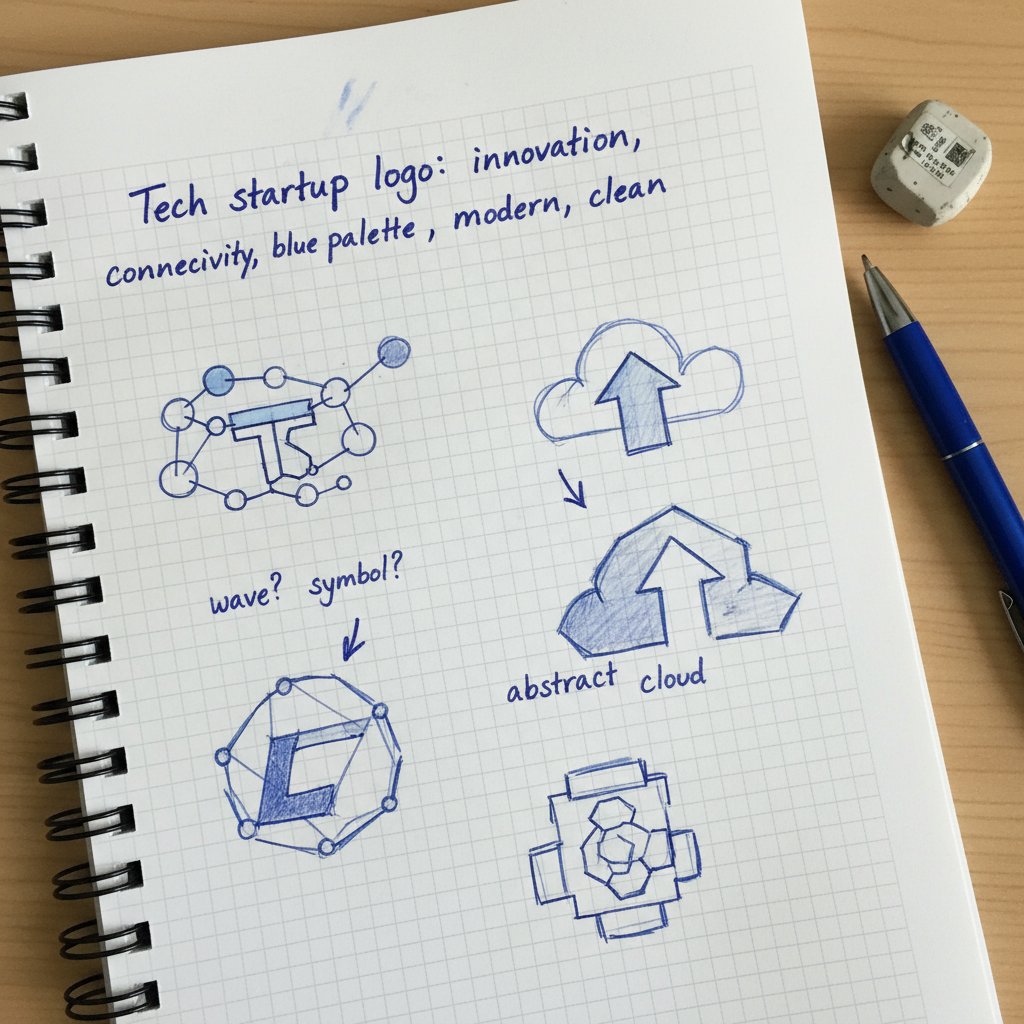 Tech startup logo: innovation,
connecivity, blue palette, modern, clean
TS
wave? symbol?
abstract cloud